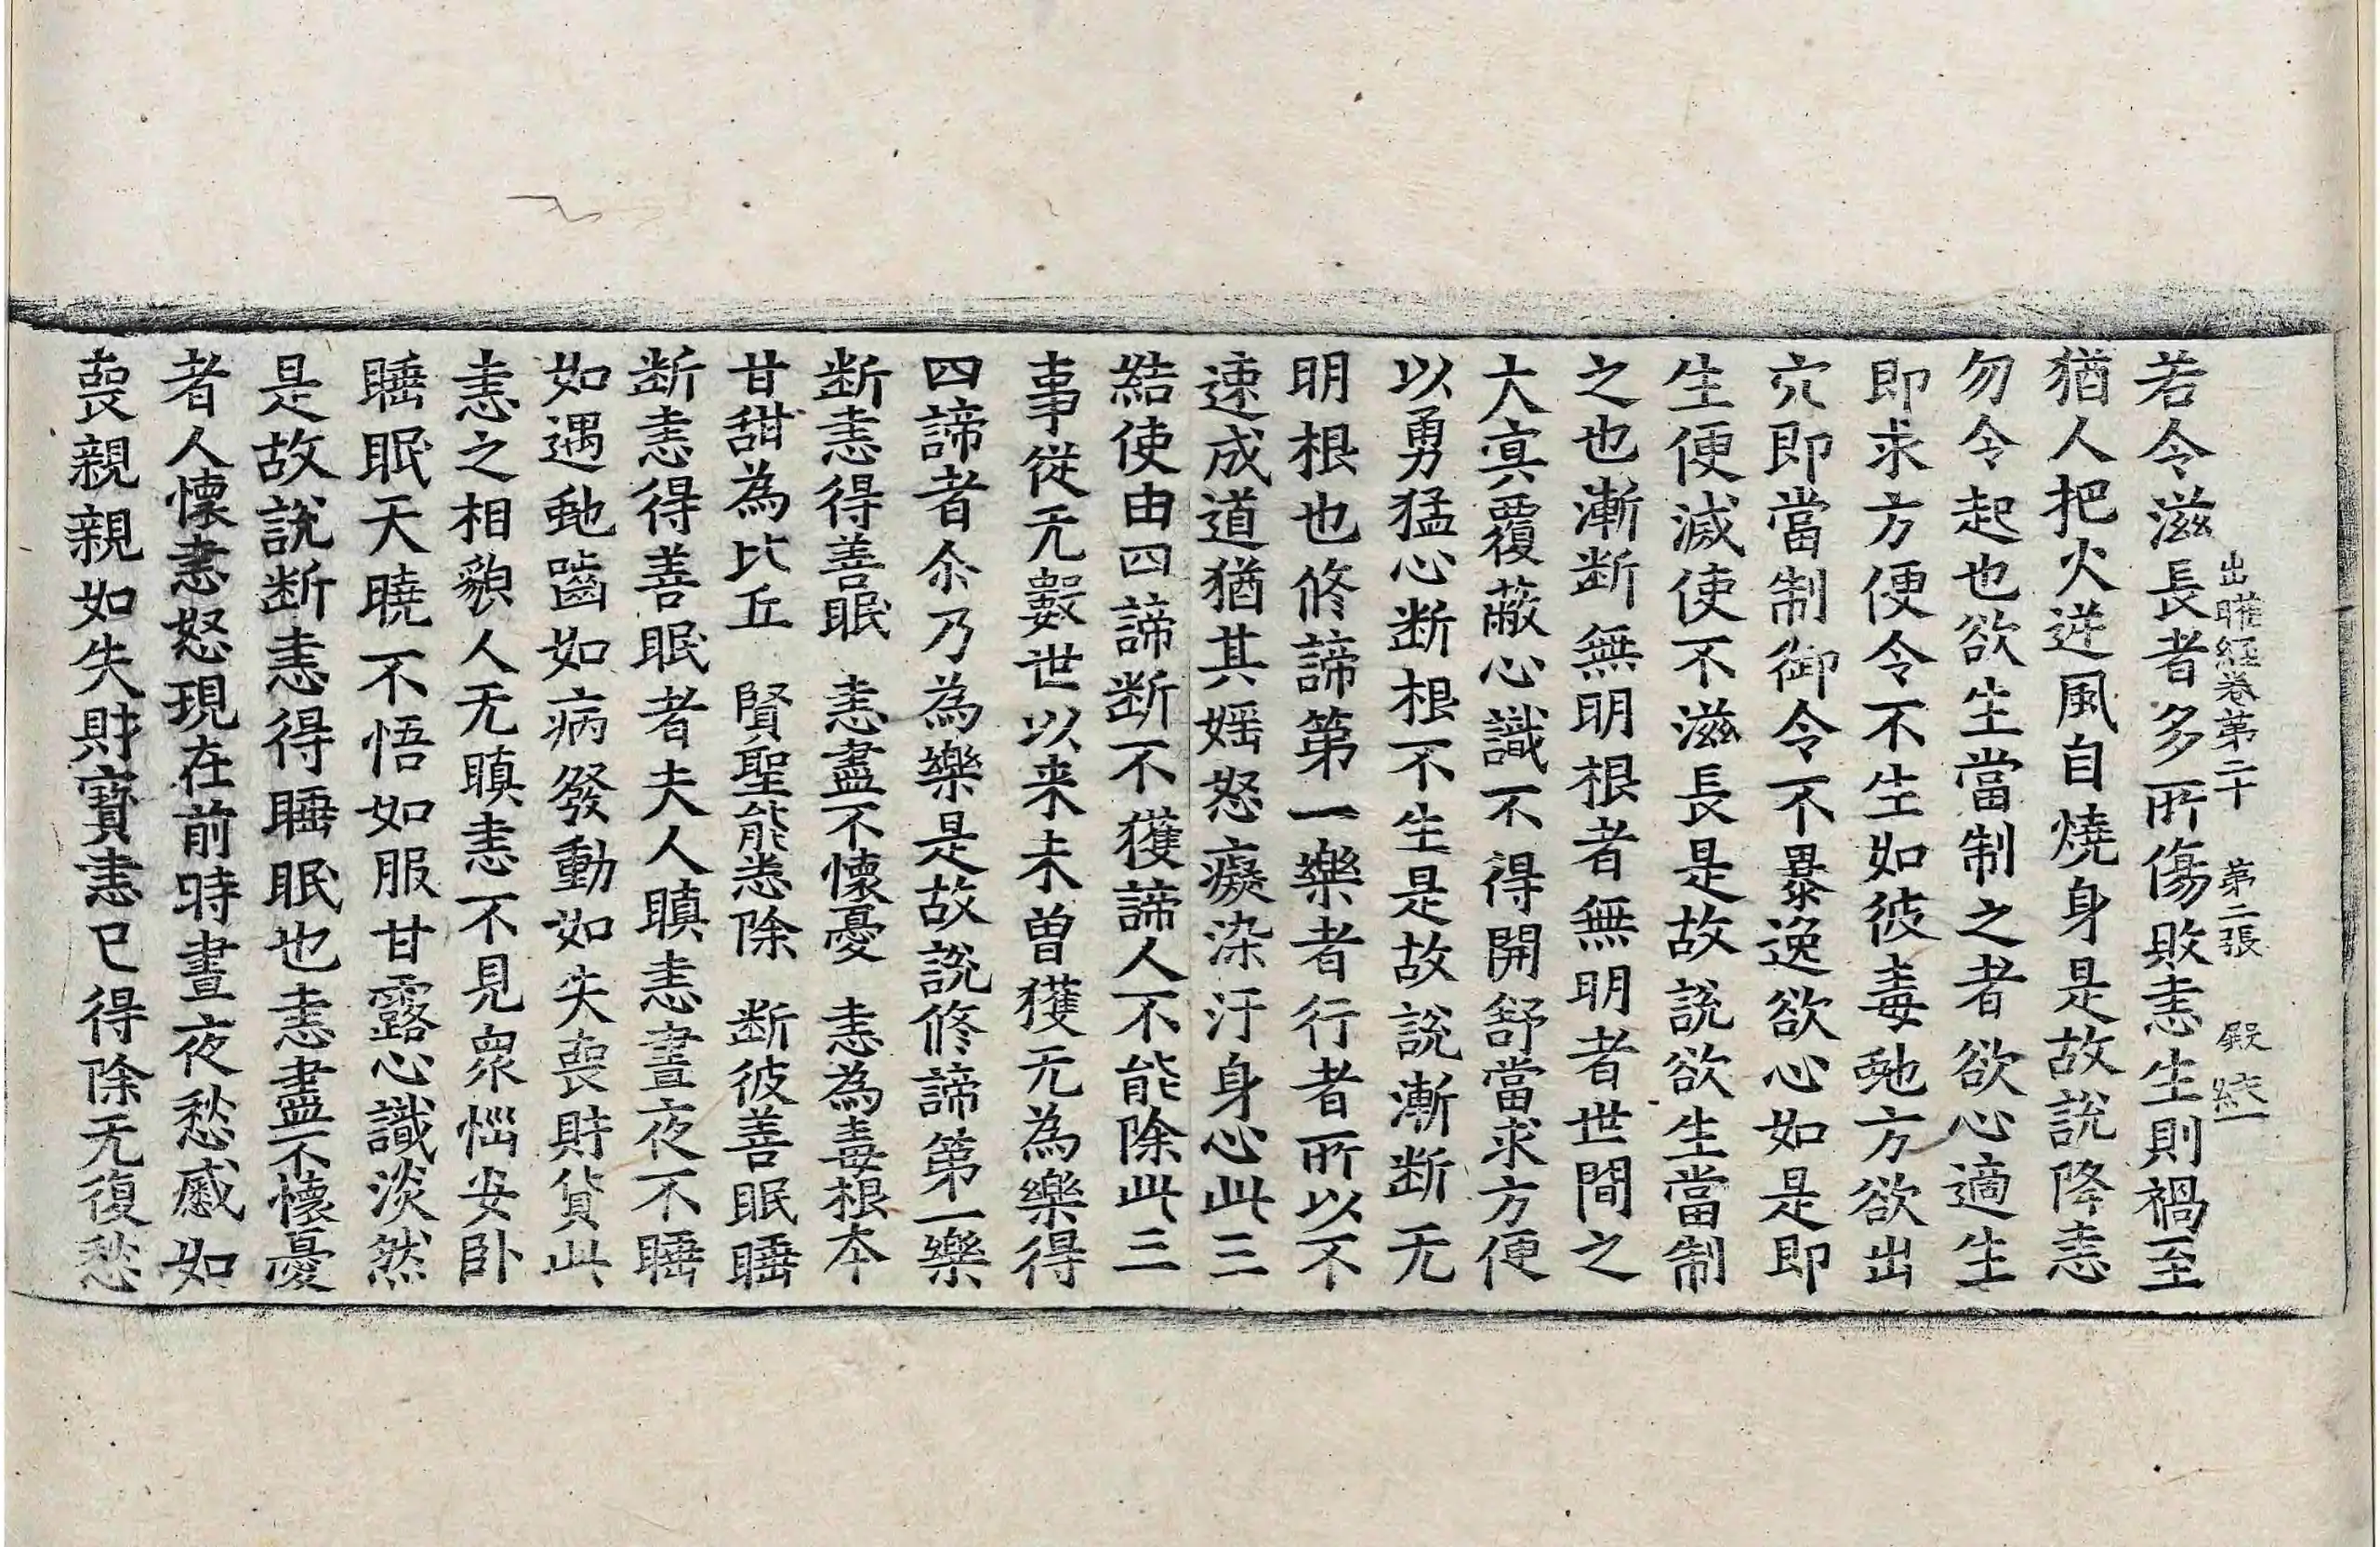 出曜經卷第二十 第二張 殿 統一
若令滋長者多所傷敗恚生則禍至
猶人把火逆風自燒身是故說降恚
勿令起也欲生當制之者欲心適生
即求方便令不生如彼毒虵方欲出
穴即當制御令不暴逸欲心如是即
生便滅使不滋長是故說欲生當制
之也漸断無明根者無明者世間之
大冥覆蔽心識不得開舒當求方便
以勇猛心断根不生是故說漸断无
明根也修諦第一樂者行者所以不
速成道猶其婬怒癡染汙身心此三
結使由四諦断不獲諦人不能除此三
事從无數世以来未曾獲无為樂得
四諦者尒乃為樂是故說修諦第一樂
断恚得善眠 恚盡不懷憂 恚為毒根本
甘甜為比丘 賢聖能悉除 断彼善眠睡
断恚得善眠者夫人瞋恚晝夜不睡
如遇虵齧如病發動如失喪財貨此
恚之相貌人无瞋恚不見衆惱安卧
睡眠天曉不悟如服甘露心識淡然
是故說断恚得睡眠也恚盡不懷憂
者人懷恚怒現在前時晝夜愁慼如
喪親親如失財寶恚已得除无復愁